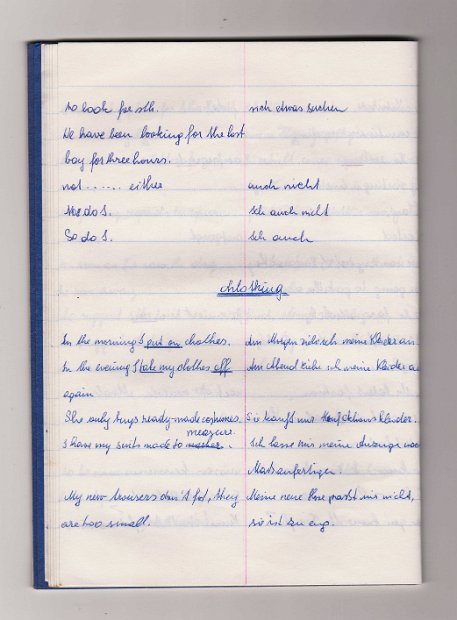 to look for sth. sich etwas suchen
We have been looking for the lost
boy for three hours.
not ...... either auch nicht
Nor do I. Ich auch nicht
So do I. Ich auch
Clothing
In the morning I put on clothes. Am Morgen ziehe ich meine Kleider an.
In the evening I take my clothes off Am Abend ziehe ich meine Kleider a
again
She only buys ready-made costumes. Sie kauft nur Konfektionskleider.
measure.
I have my suits made to Ich lasse mir meine Anzüge nach
Maß anfertigen.
My new trousers don't fit, they Meine neue Hose paßt mir nicht,
are too small. sie ist zu eng.